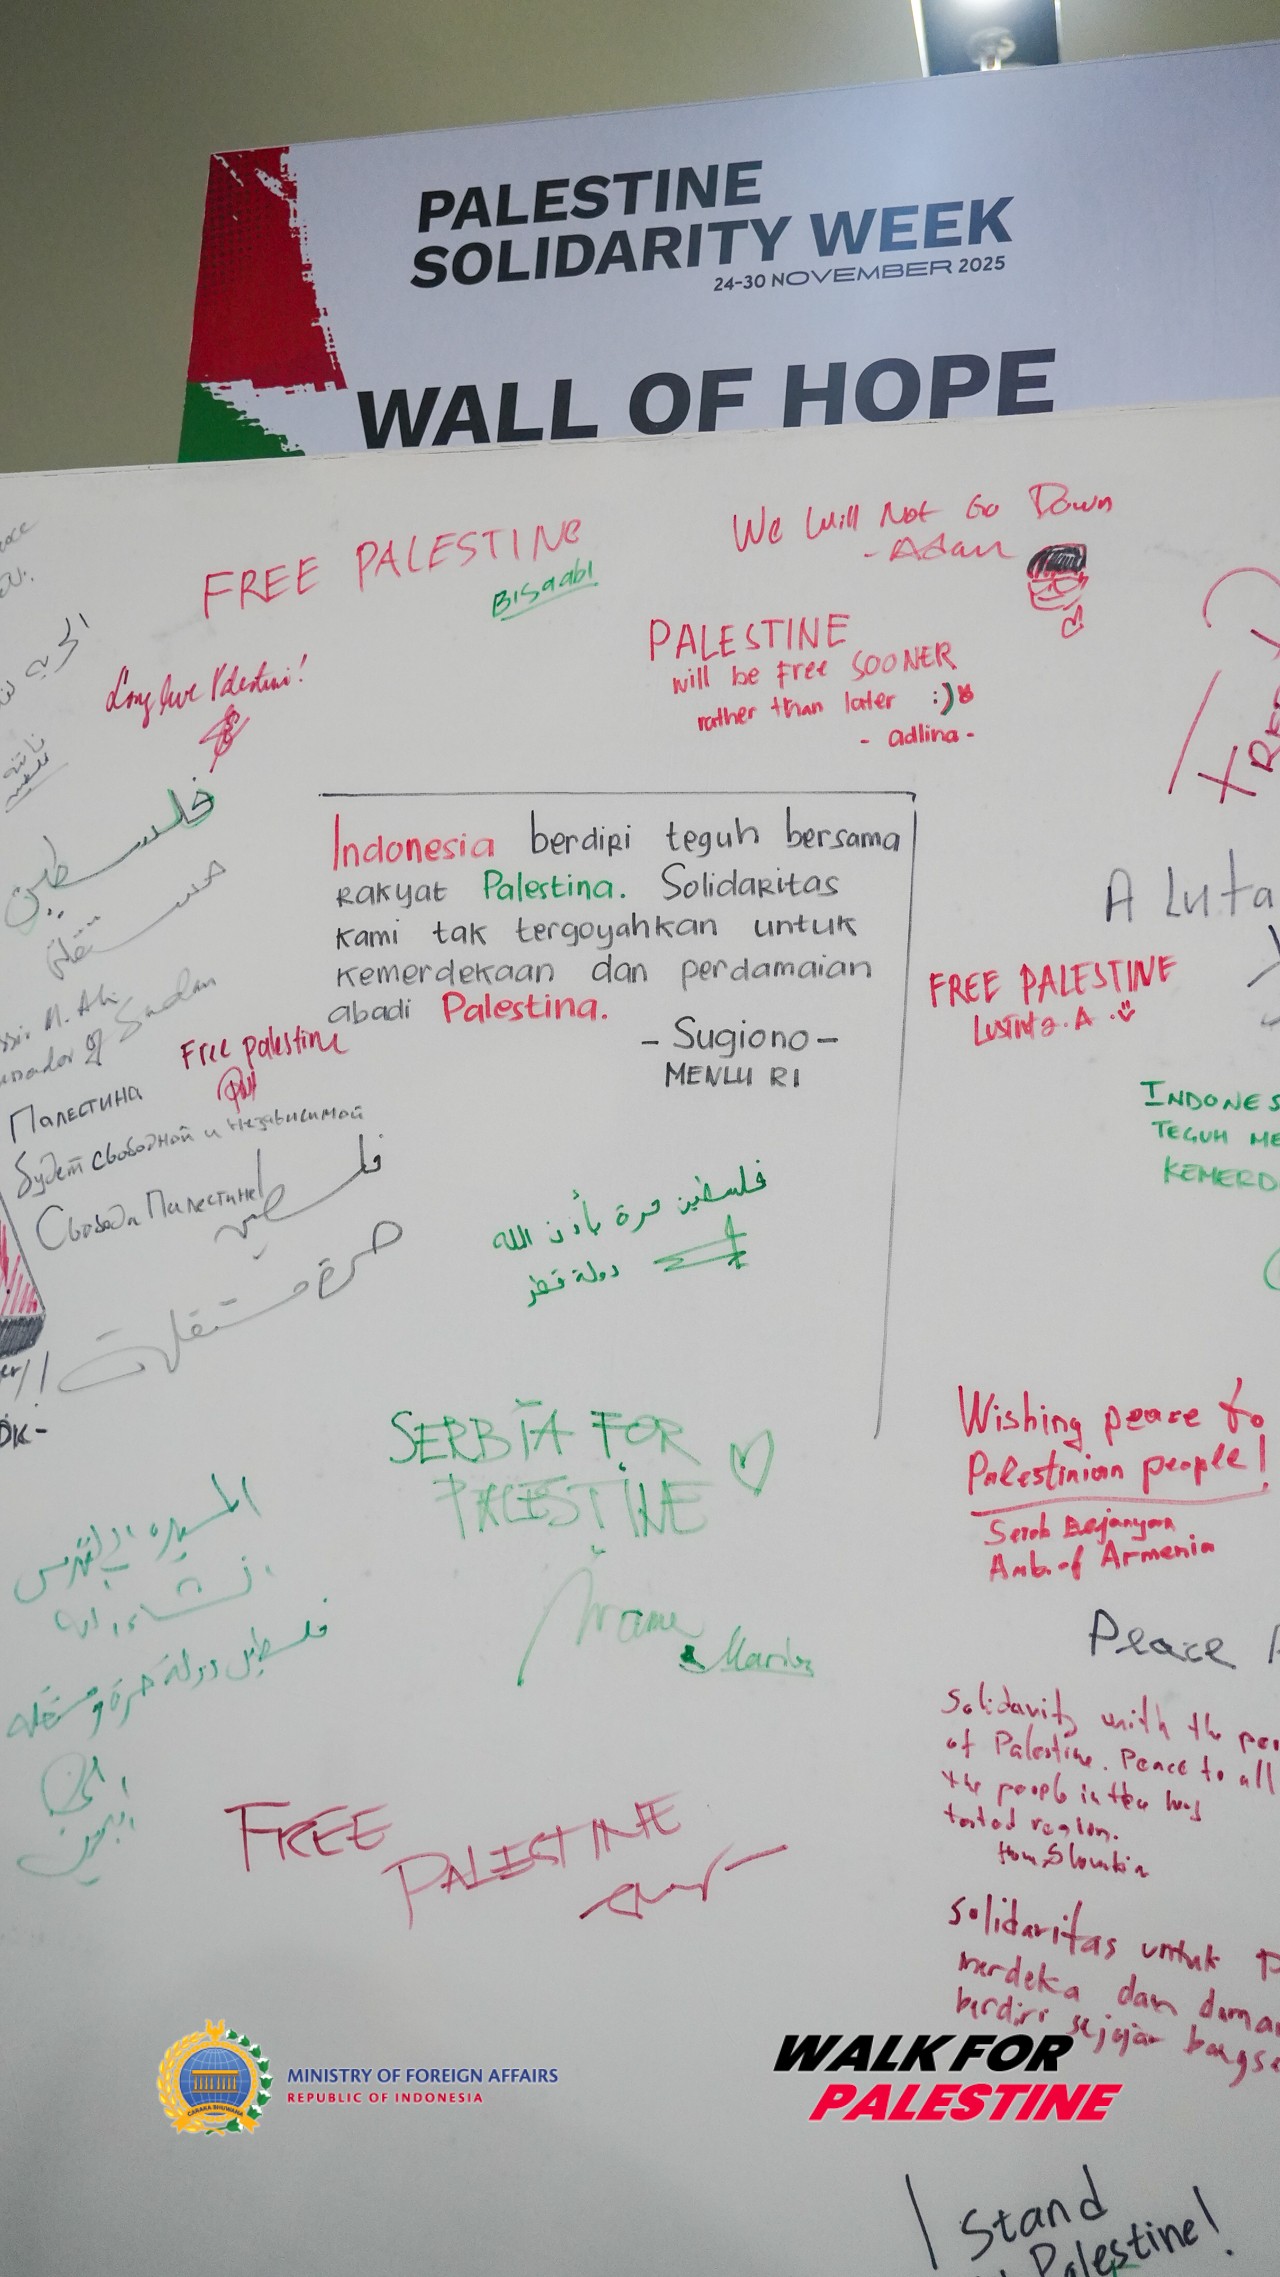 PALESTINE
SOLIDARITY WEEK
24-30 NOVEMBER 2025
WALL OF HOPE
FREE PALESTINE
BISaabi
We Will Not Go Down
- Adan
PALESTINE
will be free SOONER
rather than later :)
- adlina -
Long live Palestina!
فلسطين
مستقلة
Indonesia berdiri teguh bersama
rakyat Palestina. Solidaritas
kami tak tergoyahkan untuk
kemerdekaan dan perdamaian
abadi Palestina.
- Sugiono -
MENLU RI
A Luta
FREE PALESTINE
M. Ali
of Sudan
Free palestine
Палестина
будет свободной и независимой
Свобода Палестине!
فلسطين
حرة مستقلة
INDONES
TEGUH ME
KEMERD
فلسطين حرة بأذن الله
دولة قطر
SERBIA FOR
PALESTINE
Wishing peace to
Palestinian people!
Amb. of Armenia
المسيرة إلى القدس
إن شاء الله
فلسطين دولة حرة ومستقلة
Peace
Solidarity with the peo
of Palestine. Peace to all
the people in the
region.
FREE
PALESTINE
Solidaritas untuk P
merdeka dan damai
berdiri sejajar bangsa
CARAKA BHUWANA
MINISTRY OF FOREIGN AFFAIRS
REPUBLIC OF INDONESIA
WALK FOR
PALESTINE
I Stand
Palestine!